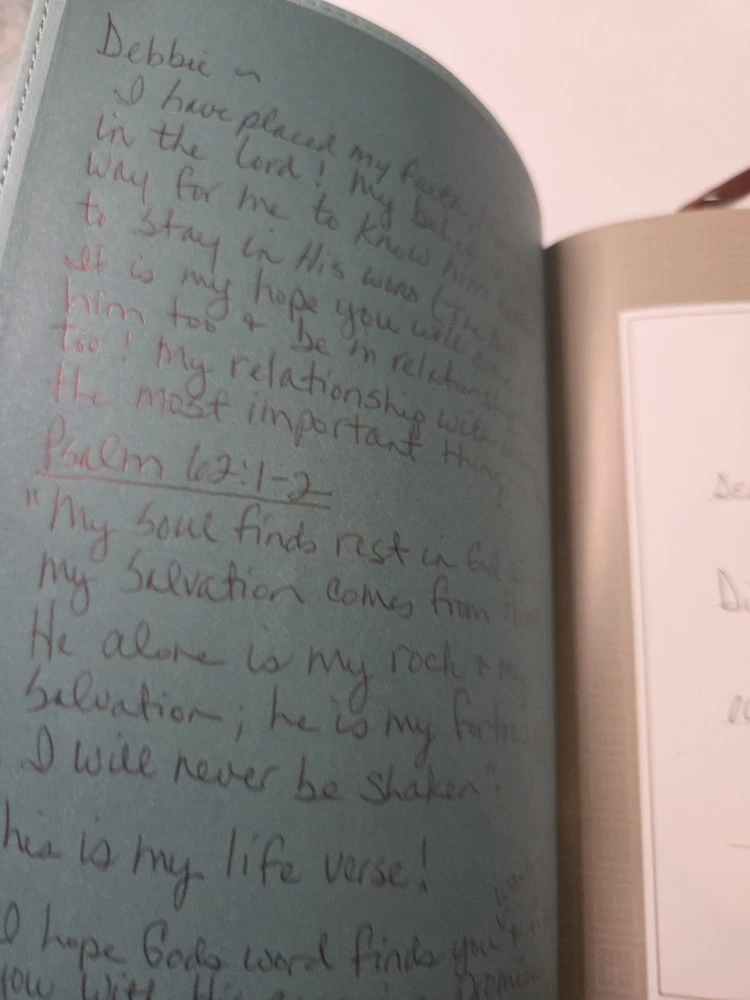 Debbie ~
I have placed my faith
in the Lord! My belief
way for me to know him
to stay in His word (The
It is my hope you will
him too & be in relationship
too! My relationship with
the most important thing
Psalm 62:1-2
"My soul finds rest in God
my salvation comes from
He alone is my rock & my
salvation; he is my fortress
I will never be shaken".
his is my life verse!
I hope Gods word finds you
you with His